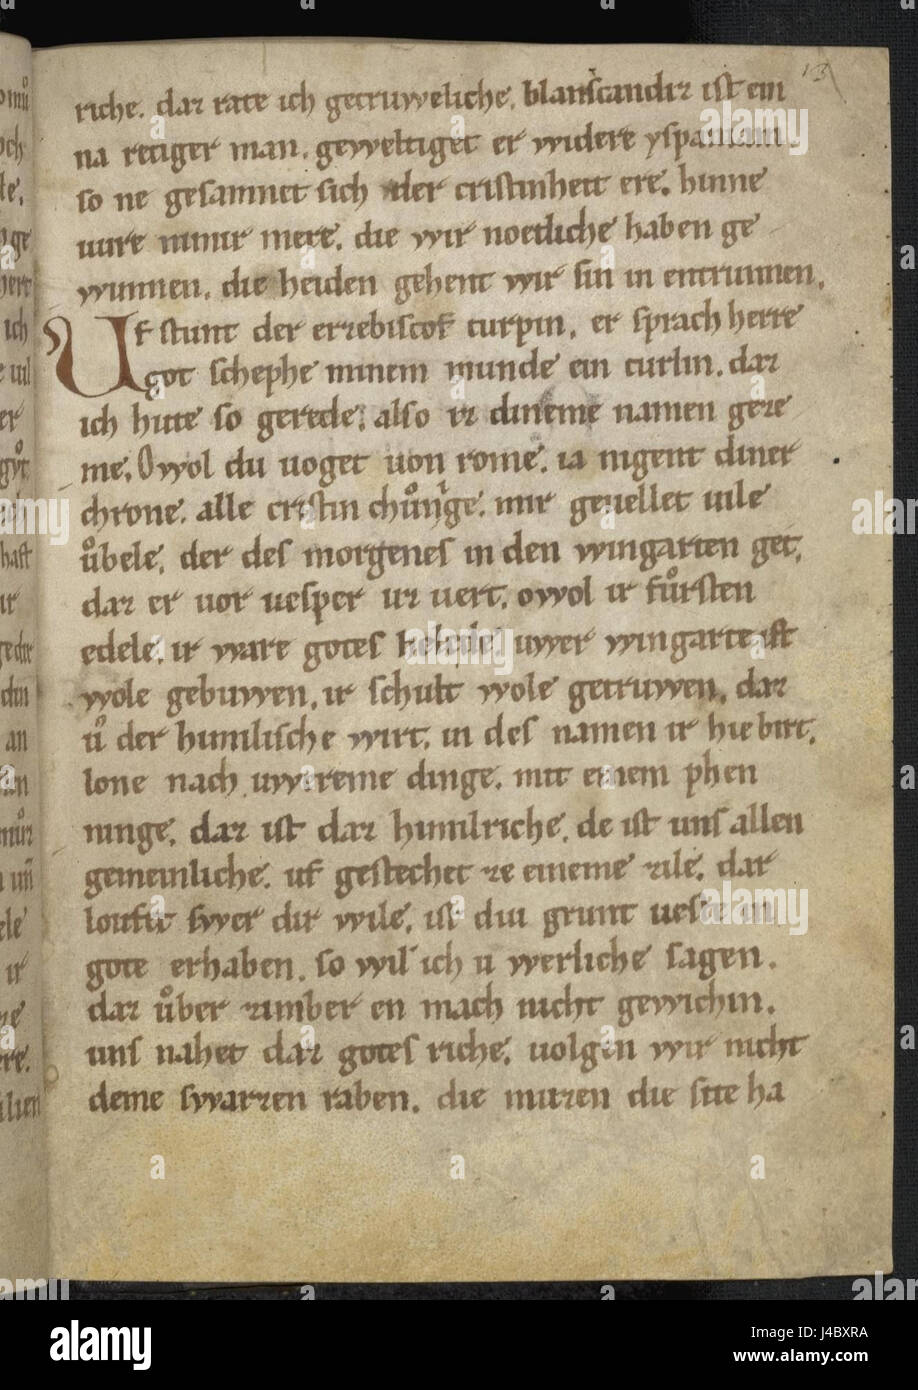 13
riche. daz rate ich getruweliche. blanscandiz ist ein
na reziger man. geweltiget er widere yspaniam.
so ne gesamnet sich der cristinheit ere. hinne
uure nimir mere. die wir noetliche haben ge
wunnen. die heiden gehent wir sin in entrunnen.
Uf stunt der erzebiscof turpin. er sprach herre
got schephe minem munde ein turlin. daz
ich hute so gerede. also iz dineme namen geze
me. Owol du uoget uon rome. ia nigent diner
chrone. alle cristin chuͦnige. mir geuellet uile
uͦbele. der des morgenes in den wingarten get.
daz er uor uesper uz uert. owol ir fuͦrsten
edele. ir waret gotes helede. uwer wingarte ist
wole gebuwen. ir schult wole getruwen. daz
uͦ der himilische wirt. in des namen ir hie birt.
lone nach uwireme dinge. mit einem phen
ninge. daz ist daz himilriche. de ist uns allen
gemeinliche. uf gestechet ze eineme zile. daz
loufit swer dir wile. ist diu grunt ueste in
gote erhaben. so wil ich u werliche sagen.
daz uͦber zimber en mach nicht gewichin.
uns nahet daz gotes riche. uolgen wir nicht
deme swarzen raben. die muzen die site ha
alamy
Image ID: J4BXRA
www.alamy.com